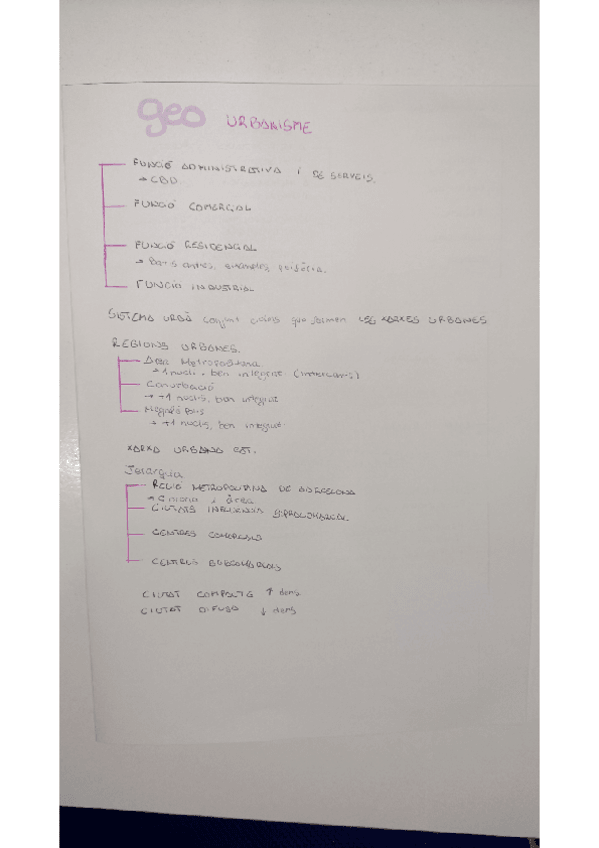 geo URBANISME
FUNCIÓ ADMINISTRATIVA I DE SERVEIS.
→ CBD
FUNCIÓ COMERCIAL
FUNCIÓ RESIDENCIAL
→ Barris antics, eixamples, perifèria.
FUNCIÓ INDUSTRIAL
SISTEMA URBÀ conjunt ciutats que formen LES XARXES URBANES
REGIONS URBANES.
Àrea Metropolitana
→ 1 nucli, ben integrat
Conurbació
→ +1 nuclis, ben integrat
Megalòpolis
→ +1 nuclis, ben integrat.
XARXA URBANA CAT.
Jerarquia
REGIÓ METROPOLITANA DE BARCELONA
→ Ciutat i àrea
CIUTATS INFLUÈNCIA SUPRACOMARCAL
CENTRES COMARCALS
CENTRES SUBCOMARCALS
CIUTAT COMPACTA ↑ dens.
CIUTAT DIFUSA ↓ dens